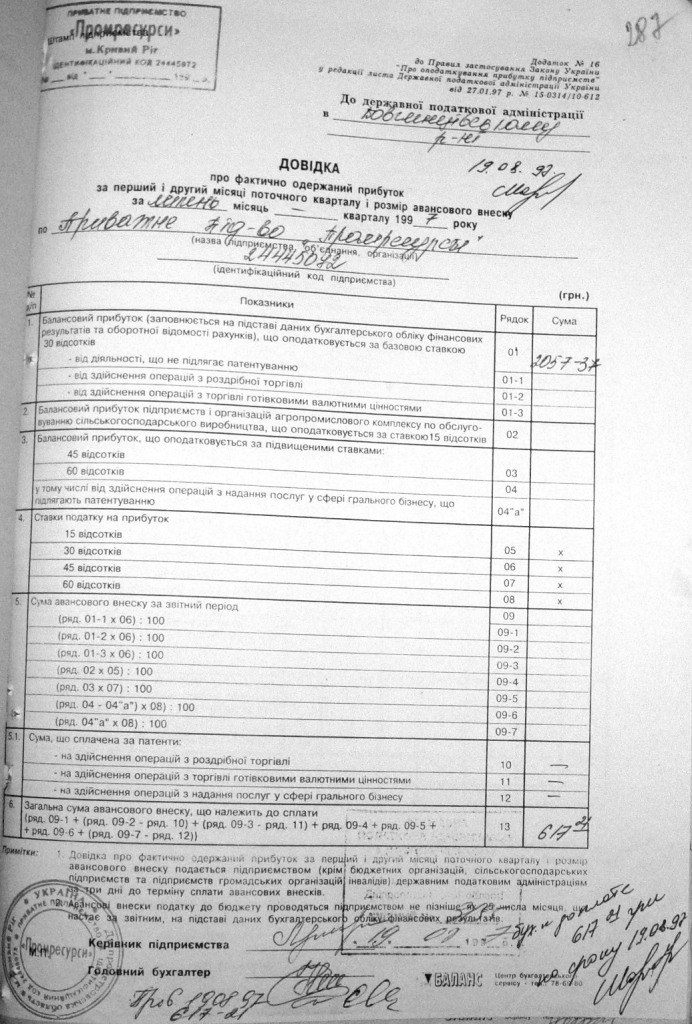 ПРИВАТНЕ ПІДПРИЄМСТВО
Штамп підприємства
«Промресурси»
м.Кривий Ріг
ІДЕНТИФІКАЦІЙНИЙ КОД 24445072
№ від " " 199 р.
287
Додаток № 16
до Правил застосування Закону України
"Про оподаткування прибутку підприємств"
у редакції листа Державної податкової адміністрації України
від 27.01.97 р. № 15-0314/10-612
До державної податкової адміністрації
в Довгинцівському
р-ні
19.08.97.
ДОВІДКА
про фактично одержаний прибуток
за перший і другий місяці поточного кварталу і розмір авансового внеску
за місяць — кварталу 1997 року
по Приватне під-во "Промресурси"
(назва підприємства, об'єднання, організації)
24445072
(ідентифікаційний код підприємства)
(грн.)
№ п/п Показники Рядок Сума
1. Балансовий прибуток (заповнюється на підставі даних бухгалтерського обліку фінансових
результатів та оборотної відомості рахунків), що оподатковується за базовою ставкою
30 відсотків 01 2057-37
- від діяльності, що не підлягає патентуванню
- від здійснення операцій з роздрібної торгівлі 01-1
- від здійснення операцій з торгівлі готівковими валютними цінностями 01-2
01-3
2. Балансовий прибуток підприємств і організацій агропромислового комплексу по обслуго-
вуванню сільськогосподарського виробництва, що оподатковується за ставкою 15 відсотків 02
3. Балансовий прибуток, що оподатковується за підвищеними ставками:
45 відсотків
60 відсотків 03
у тому числі від здійснення операцій з надання послуг у сфері грального бізнесу, що 04
підлягають патентуванню 04"а"
4. Ставки податку на прибуток
15 відсотків
30 відсотків 05 х
45 відсотків 06 х
60 відсотків 07 х
08 х
5. Сума авансового внеску за звітний період 09
(ряд. 01-1 х 06) : 100 09-1
(ряд. 01-2 х 06) : 100 09-2
(ряд. 01-3 х 06) : 100 09-3
(ряд. 02 х 05) : 100 09-4
(ряд. 03 х 07) : 100 09-5
(ряд. 04 - 04"а") х 08) : 100 09-6
(ряд. 04"а" х 08) : 100 09-7
5.1. Сума, що сплачена за патенти:
- на здійснення операцій з роздрібної торгівлі 10 —
- на здійснення операцій з торгівлі готівковими валютними цінностями 11 —
- на здійснення операцій з надання послуг у сфері грального бізнесу 12 —
6. Загальна сума авансового внеску, що належить до сплати
(ряд. 09-1 + (ряд. 09-2 - ряд. 10) + (ряд. 09-3 - ряд. 11) + ряд. 09-4 + ряд. 09-5 + 13 617 21
+ ряд. 09-6 + (ряд. 09-7 - ряд. 12))
Примітки: 1. Довідка про фактично одержаний прибуток за перший і другий місяці поточного кварталу і розмір
авансового внеску подається підприємством (крім бюджетних організацій, сільськогосподарських
підприємств та підприємств громадських організацій інвалідів) державним податковим адміністраціям
за три дні до терміну сплати авансових внесків.
2. Авансові внески до бюджету проводяться підприємством не пізніше числа місяця, що
настає за звітним, на підставі даних бухгалтерського обліку фінансових результатів.
УКРАЇНА
"Промресурси"
М.П.
Керівник підприємства
19. 08
Головний бухгалтер
БАЛАНС Центр бухгалтерського
сервісу
Пров 19.08.97
617-21
к доплате
617 21 грн
по сроку 19.08.97